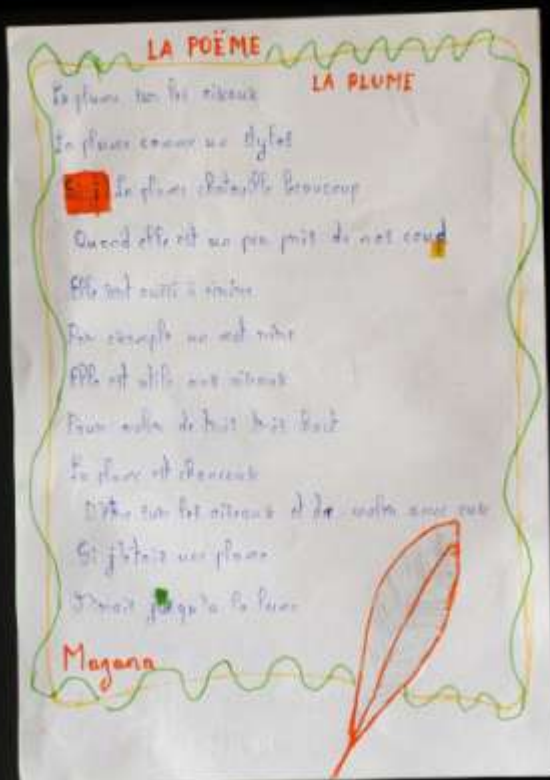 LA POËME
LA PLUME
La plume sur les oiseaux
La plume comme un stylet
La plume chatouille beaucoup
Quand elle est un peu près de nos coud
Elle sert aussi à écrire
Par exemple un mot
Elle est utile aux oiseaux
Pour voler de très très haut
La plume est chanceuse
D'être sur les oiseaux et de voler avec eux
Si j'étais une plume
J'irais jusqu'à la lune
Mazann